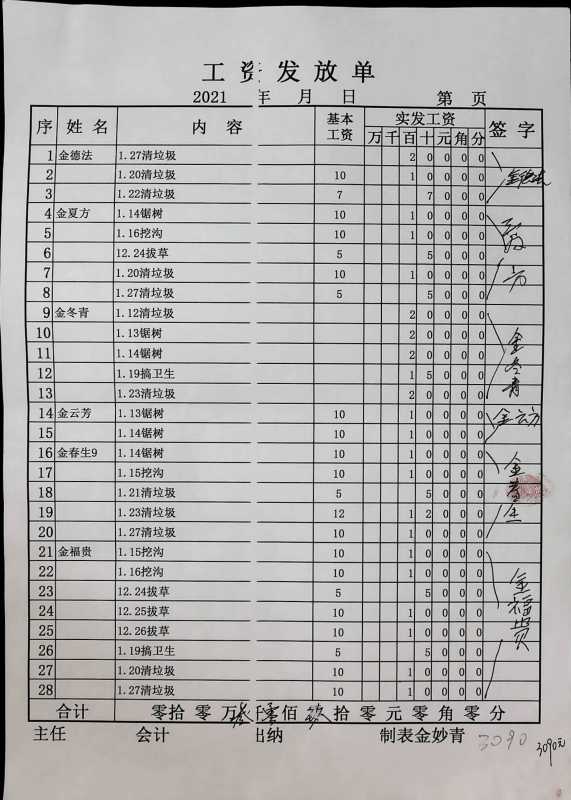 工资发放单
2021 年 月 日 第 页
序 姓名 内容 基本工资 实发工资 签字
万 千 百 十 元 角 分
1 金德法 1.27清垃圾 2 0 0 0 0
2 1.20清垃圾 10 1 0 0 0 0
3 1.22清垃圾 7 7 0 0 0
4 金夏方 1.14锯树 10 1 0 0 0 0
5 1.16挖沟 10 1 0 0 0 0
6 12.24拔草 5 5 0 0 0
7 1.20清垃圾 10 1 0 0 0 0
8 1.27清垃圾 5 5 0 0 0
9 金冬青 1.12清垃圾 2 0 0 0 0
10 1.13锯树 2 0 0 0 0
11 1.14锯树 2 0 0 0 0
金冬青
12 1.19搞卫生 1 5 0 0 0
13 1.23清垃圾 2 0 0 0 0
14 金云芳 1.13锯树 10 1 0 0 0 0 金云方
15 1.14锯树 10 1 0 0 0 0
16 金春生9 1.14锯树 10 1 0 0 0 0
17 1.15挖沟 10 1 0 0 0 0
18 1.21清垃圾 5 5 0 0 0
19 1.23清垃圾 12 1 2 0 0 0
20 1.27清垃圾 10 1 0 0 0 0
21 金福贵 1.15挖沟 10 1 0 0 0 0
22 1.16挖沟 10 1 0 0 0 0
金福贵
23 12.24拔草 5 5 0 0 0
24 12.25拔草 10 1 0 0 0 0
25 12.26拔草 10 1 0 0 0 0
26 1.19搞卫生 5 5 0 0 0
27 1.20清垃圾 10 1 0 0 0 0
28 1.27清垃圾 10 1 0 0 0 0
合计 零拾零万叁仟零佰玖拾零元零角零分
主任 会计 出纳 制表金妙青 3090 3090元